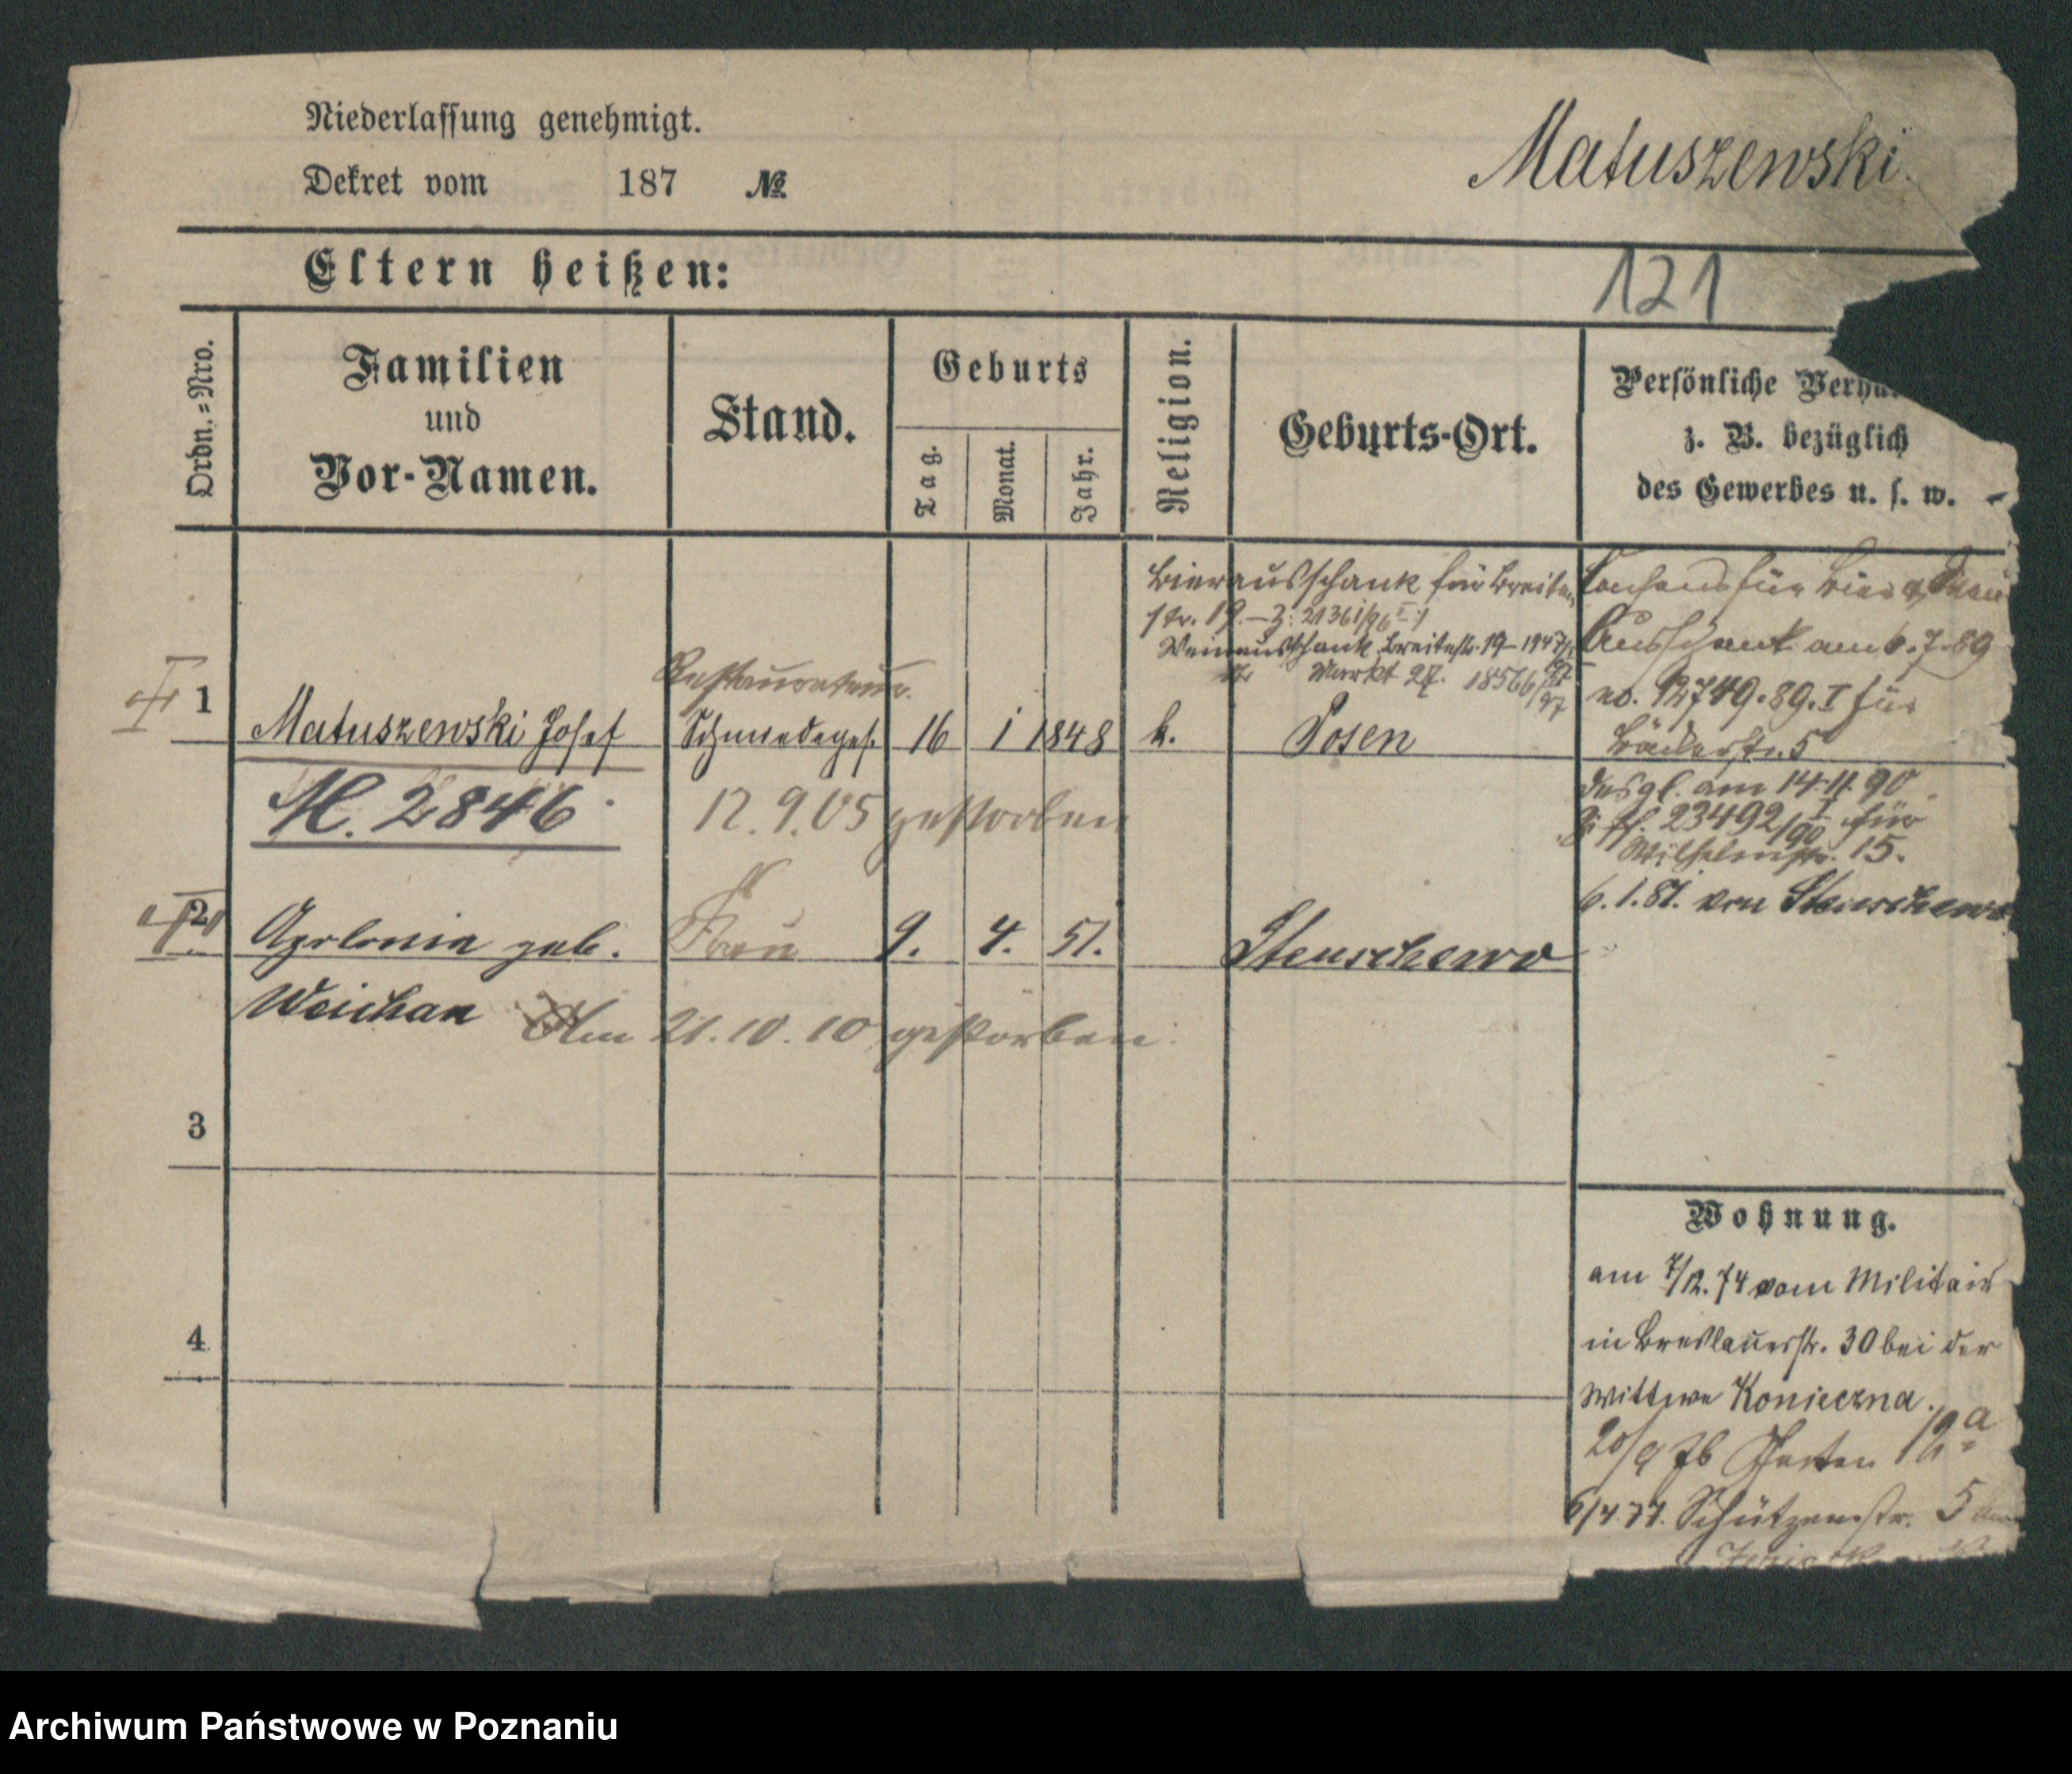 Niederlassung genehmigt.
Matuszewski.
Dekret vom 187 №
Eltern heißen:
121
Ordn.=Nro.
Familien und Vor-Namen.
Stand.
Geburts
Tag.
Monat.
Jahr.
Religion.
Geburts-Ort.
Persönliche Verhä
z. B. bezüglich
des Gewerbes u. s. w.
Bierausschank für Breite
str. 19. – Z. 21361/96 I
Weinausschank Breitestr. 19 – 1947/
Markt 27. 18566/97
Consens für Bier
Ausschank am 6.7.89
no. 12749.89.I für
Bäckerstr. 5
Restaurateur.
1 Matuszewski Josef Schmiedeges. 16 1 1848 k. Posen
M. 2846
12.9.05 gestorben
desgl. am 14.11.90
23492/90 I für
Wilhelmstr. 15.
6.1.81. von Stenschewo
2 Apolonia geb. Frau 9. 4. 51. Stenschewo
Weichan Am 21.10.10 gestorben
3
4
Wohnung.
am 7/12.74 vom Militair
in Breslauerstr. 30 bei der
Wittwe Konieczna.
20/9 76 Garten 12a
6/4.77. Schützenstr. 5
Archiwum Państwowe w Poznaniu